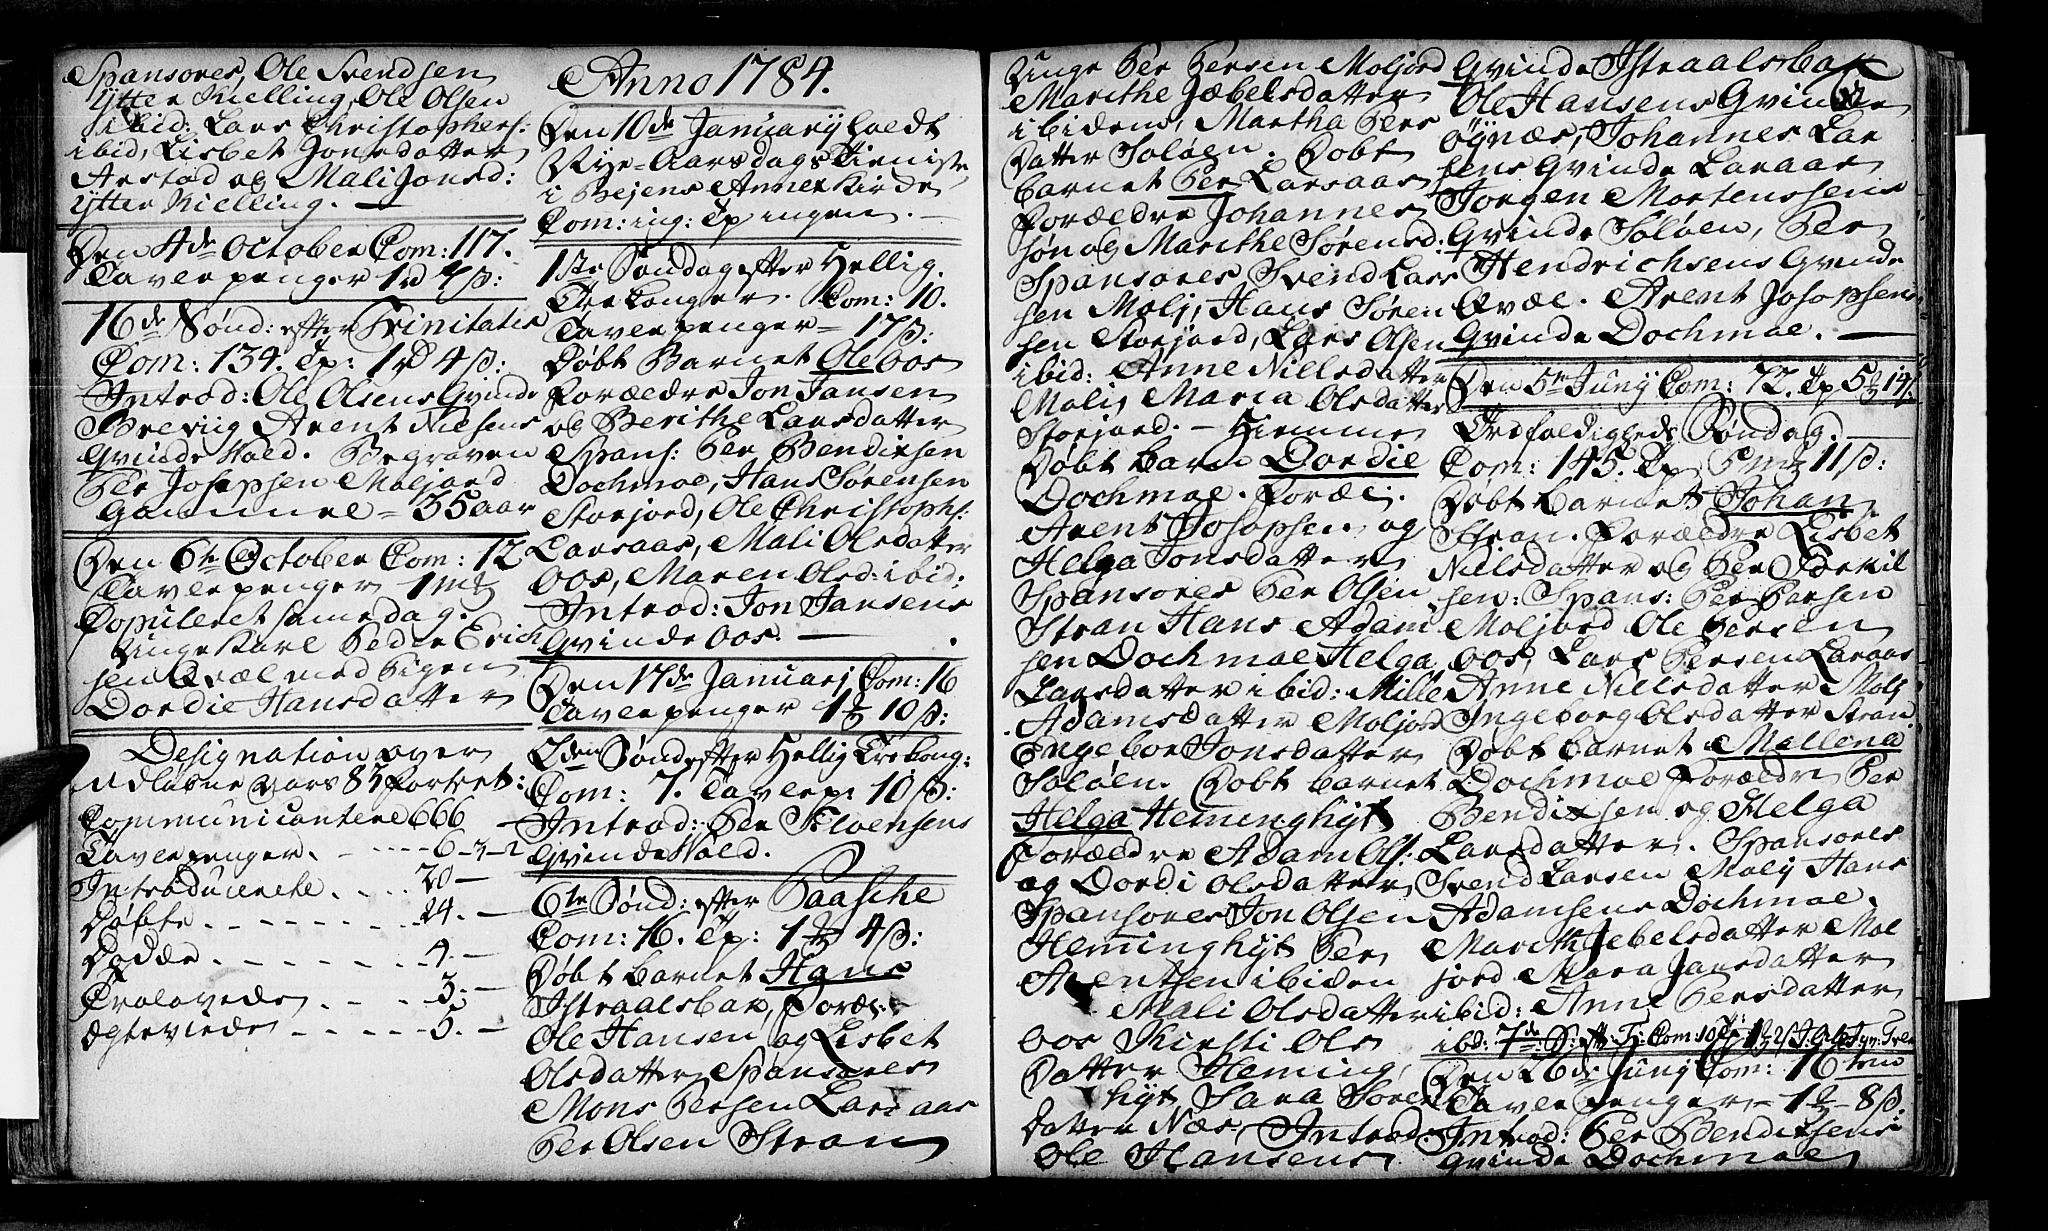 Spansores, Ole Svendsen
Ytter Kielling, Ole Olsen
ibid: Lars Christophers:
ibid, Lisbet Jonsdatter
Arstad og Mali Jonsd:
Ytter Kielling. —
Den 4de October Com: 117.
Tavlepenger 1rd 4ß:
16de Sønd: efter Trinitatis
Com: 134. Tp: 1rd 4ß:
Introd: Ole Olsens Qvinde
Breviig Arent Nielsens
Qvinde Vold. Begraven
Per Josephsen Moljord
gammel = 35 aar
Den 6te October Com: 12
Tavlepenger 1 mk
Copuleret samme dag.
Unge Karl Peder Erich
sen Qvæl med Pigen
Dordie Hansdatter
Designation over
Udlabne Aars 83 forret:
Communicantere 666
Tavlepenger. - - - - 6-3-2
Introducerete. . . . . 20 —
Døbte - - - - - - - 24. —
Dødde. - - - - - - 4. —
Trolovede. - . - - 3. —
Ægteviede - - - - - 5. —
Anno 1784.
Den 10de Januarij holdt
Nye-Aarsdags Tieniste
i Bejens Annex Kirche
Com: ing: Tp ingen. —
1ste Søndag efter Hellig.
Tre Konger. Com: 10.
Tavlepenger = 17ß:
Døbt Barnet Ole Oos
Forældre Jon Jansen
og Berithe Larsdatter
Spans: Per Bendixsen
Dochmoe, Hans Sørensen
Storjord, Ole Christophs:
Larsaas, Mali Olsdatter
Oos, Maren Olsd: ibid:
Introd: Jon Jansens
Qvinde Oos. —
Den 17de Januarj Com: 16
Tavlepenger 1 mk 10ß:
2den Sønd efter Hellig Trekong:
Com: 7. Tavlep: 10ß:
Introd: Per
Qvinde Vold.
6te Sønd: efter Paasche
Com: 16. Tp: 1 mk 4ß:
Døbt barnet Hans
Istraalsbak, Foræ:
Ole Hansen, og Lisbet
Olsdatter Spansores
Mons Persen Larsaas
Per Olsen Stran
Unge Per Persen Moljord
Marithe Jæbelsdatter
ibidem, Martha Pers
Datter Soløen. Døbt
barnet Per Larsaas
Forældre Johannes
søn og Marithe Sørensd:
Spansores Svend Lars
sen Molj, Hans Søren
sen Storjord, Lars Olsen
ibid: Anne Nielsdatter
Molj, Maria Olsdatter
Storjord. — Hiemme
Døbt barn Dordie
Dochmoe. Foræ:
Arent Josephsen og
Helga Jonsdatter
Spansores Per Olsen
Stran Hans Adam
sen Dochmoe Helga
Larsdatter ibid: Mille
Adamsdatter Moljord
Ingebor Jonsdatter
Soløen. Døbt barnet
Helga Heminghÿt
Forældre Adam Ols:
og Dordi Olsdatter
Spansores Jon Olsen
Heminghÿt Per
Arentsen ibiden
Mali Olsdatter
Oos Kirsti Ols
Datter Heming,
hÿt Sara Søren
datter Næs, Introd:
Ole Hansens
Qvinde Istraalsbak
Ole Hansens Qvinde
øÿnæs, Johannes Lar
sens Qvinde Larsaas
Jørgen Mortenssens
Qvinde Soløen, Per
Hendrichsens Qvinde
Qvæl. Arent Josephsens
Qvinde Dochmoe. —
Den 5te Junÿ Com: 72. Tp 5 mk 14ß.
Trefoldigheds Søndag. —
Com: 145. Tp: 5 mk 11ß:
Døbt barnet Johan
Stran. Forældre Lisbet
Nielsdatter og Per Eskil
sen: Spans: Per Persen
Moljord Ole Persen
Oos, Lars Persen Larsaas
Anne Nielsdatter Molj
Ingeborg Olsdatter Stran
Døbt barnet Mallena
Dochmoe Forældre Per
Bendixsen og Helga
Larsdatter. Spansores
Svend Larsen Molj Hans
Adamsens Dochmoe.
Marith Jebelsdatter Mol
jord Mara Jansdatter
ibid: Anne Persdatter
ibd: 7de S: eft: Tr: Com: 10
Den 26de Junÿ Com: 16
Tavlepenger - 1 mk - 8ß.
Introd: Per Bendixsens
Qvinde Dochmoe